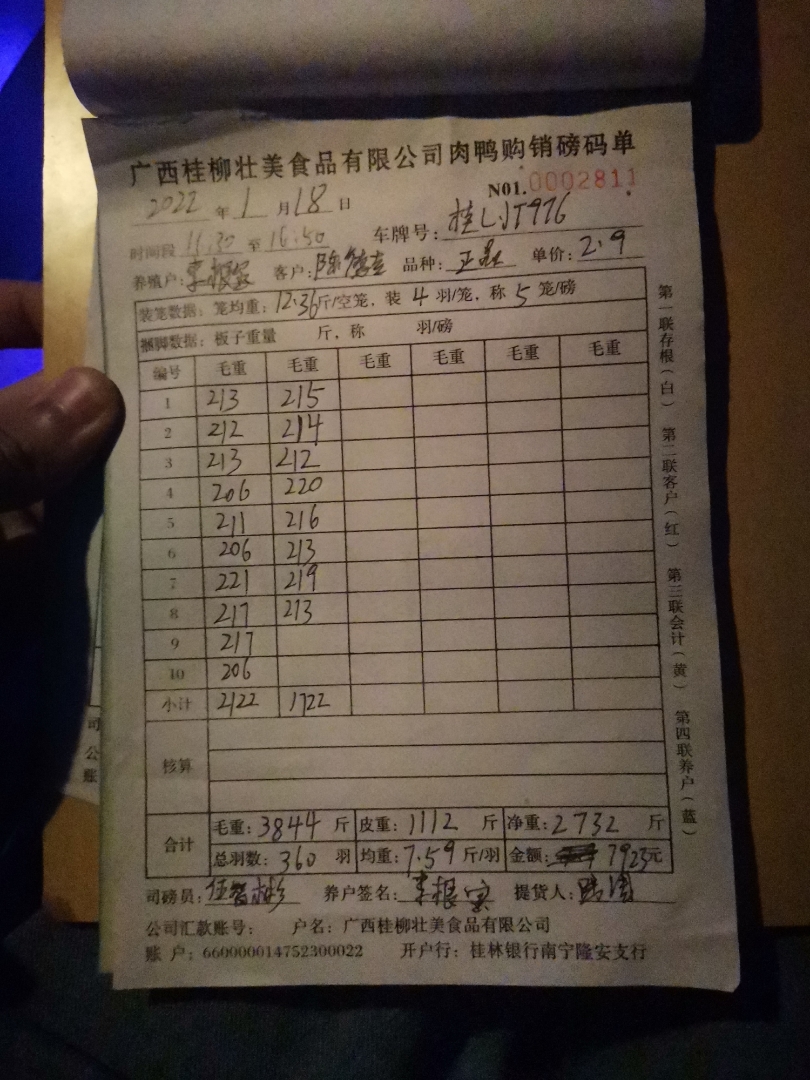 广西桂柳壮美食品有限公司肉鸭购销磅码单
N01.0002811
2022 年 1 月 18 日
时间段 11:30 至 16:50 车牌号: 桂LJT976
养殖户: 李根 客户: 陈 品种: 正 单价: 2.9
装笼数据: 笼均重: 12.36斤/空笼, 装 4 羽/笼, 称 5 笼/磅
捆脚数据: 板子重量 斤, 称 羽/磅
编号 毛重 毛重 毛重 毛重 毛重 毛重
1 213 215
2 212 214
3 213 212
4 206 220
5 211 216
6 206 213
7 221 219
8 217 213
9 217
10 206
小计 2122 1722
核算
合计 毛重: 3844 斤 皮重: 1112 斤 净重: 2732 斤
总羽数: 360 羽 均重: 7.59 斤/羽 金额: 7923元
司磅员: 伍 彬 养户签名: 李根 提货人:
公司汇款账号: 户名: 广西桂柳壮美食品有限公司
账 户: 660000014752300022 开户行: 桂林银行南宁隆安支行
第一联存根(白) 第二联客户(红) 第三联会计(黄) 第四联养户(蓝)
司
公
账